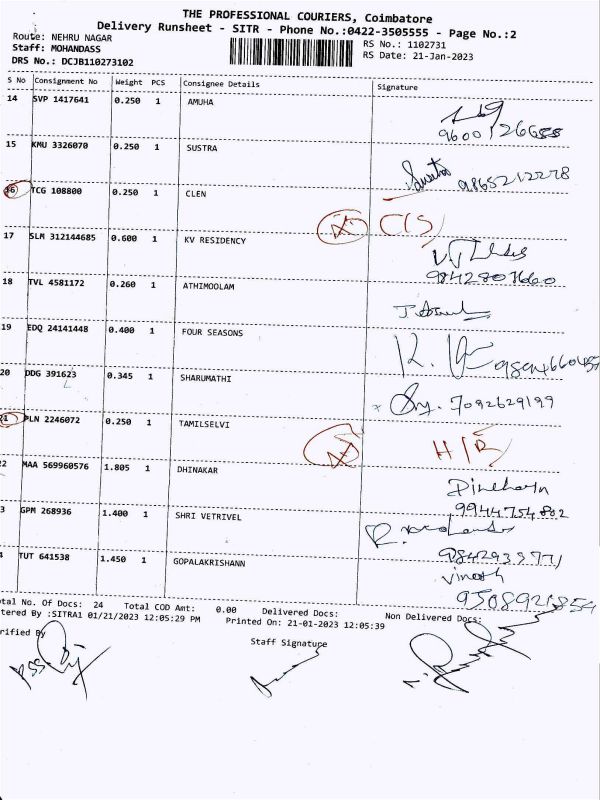 THE PROFESSIONAL COURIERS, Coimbatore
Delivery Runsheet - SITR - Phone No.:0422-3505555 - Page No.:2
Route: NEHRU NAGAR
Staff: MOHANDASS
DRS No.: DCJB110273102
RS No.: 1102731
RS Date: 21-Jan-2023
S No Consignment No Weight PCS Consignee Details Signature
14 SVP 1417641 0.250 1 AMUHA
9600126655
15 KMU 3326070 0.250 1 SUSTRA
9865212278
16 TCG 108800 0.250 1 CLEN
C/S
17 SLM 312144685 0.600 1 KV RESIDENCY
9842807660
18 TVL 4581172 0.260 1 ATHIMOOLAM
19 EDQ 24141448 0.400 1 FOUR SEASONS
20 DDG 391623 0.345 1 SHARUMATHI
7092629199
21 PLN 2246072 0.250 1 TAMILSELVI
22 MAA 569960576 1.805 1 DHINAKAR
9944754802
3 GPM 268936 1.400 1 SHRI VETRIVEL
4 TUT 641538 1.450 1 GOPALAKRISHANN
Vinosh
9508921854
otal No. Of Docs: 24 Total COD Amt: 0.00 Delivered Docs: Non Delivered Docs:
tered By :SITRA1 01/21/2023 12:05:29 PM Printed On: 21-01-2023 12:05:39
rified By
Staff Signature